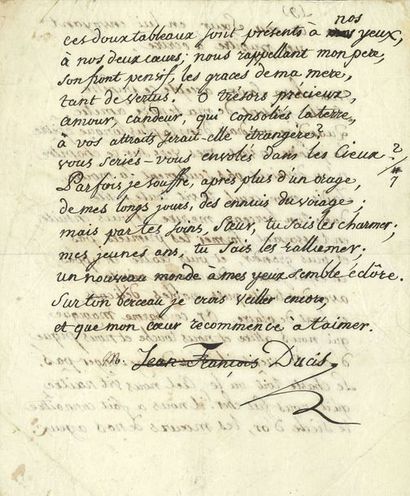 nos
ces doux tableaux sont présents à nos yeux,
à nos deux cœurs; nous rappellant mon pere,
son front pensif, les graces de ma mere,
tant de vertus. O trésors précieux,
amour, candeur, qui consoliés la terre,
à vos attraits serait-elle étrangère?
vous seriés-vous envolés dans les Cieux?
Parfois je souffre, après plus d'un orage,
de mes longs jours, des ennuis du voiage;
mais par tes soins, sœur, tu sais les charmer;
mes jeunes ans, tu sais les rallumer.
un nouveau monde à mes yeux semble éclôre.
Sur ton berceau je crois veiller encore,
et que mon cœur recommence à t'aimer.
Jean-François Ducis